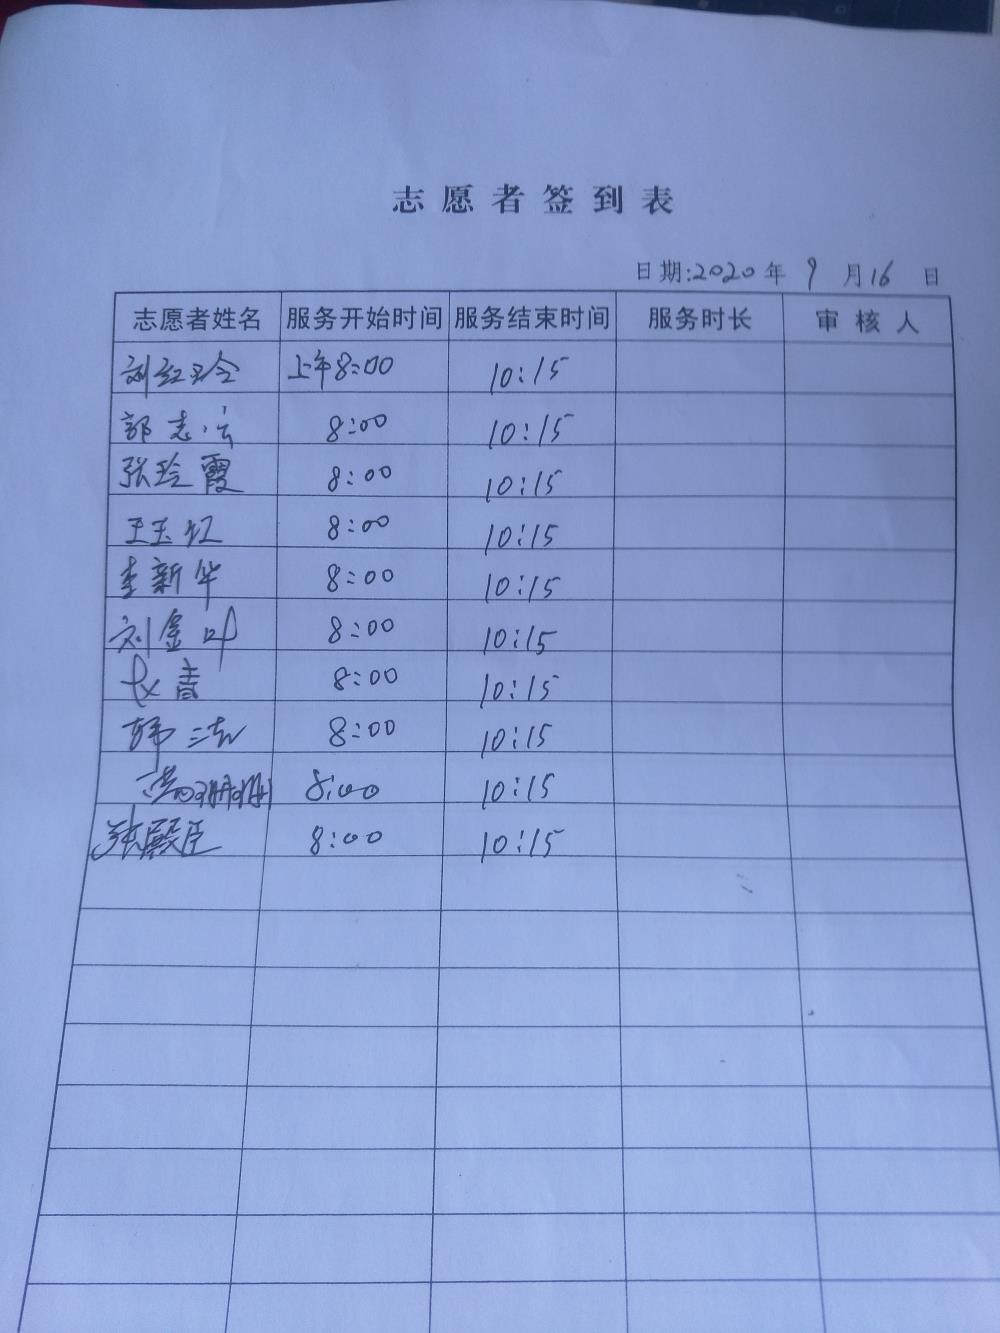 志愿者签到表
日期:2020年9月16日
志愿者姓名 服务开始时间 服务结束时间 服务时长 审核人
刘红玲 上午8:00 10:15
郭志云 8:00 10:15
张玲霞 8:00 10:15
王玉红 8:00 10:15
李新华 8:00 10:15
刘金叶 8:00 10:15
青 8:00 10:15
韩 8:00 10:15
8:00 10:15
张殿臣 8:00 10:15